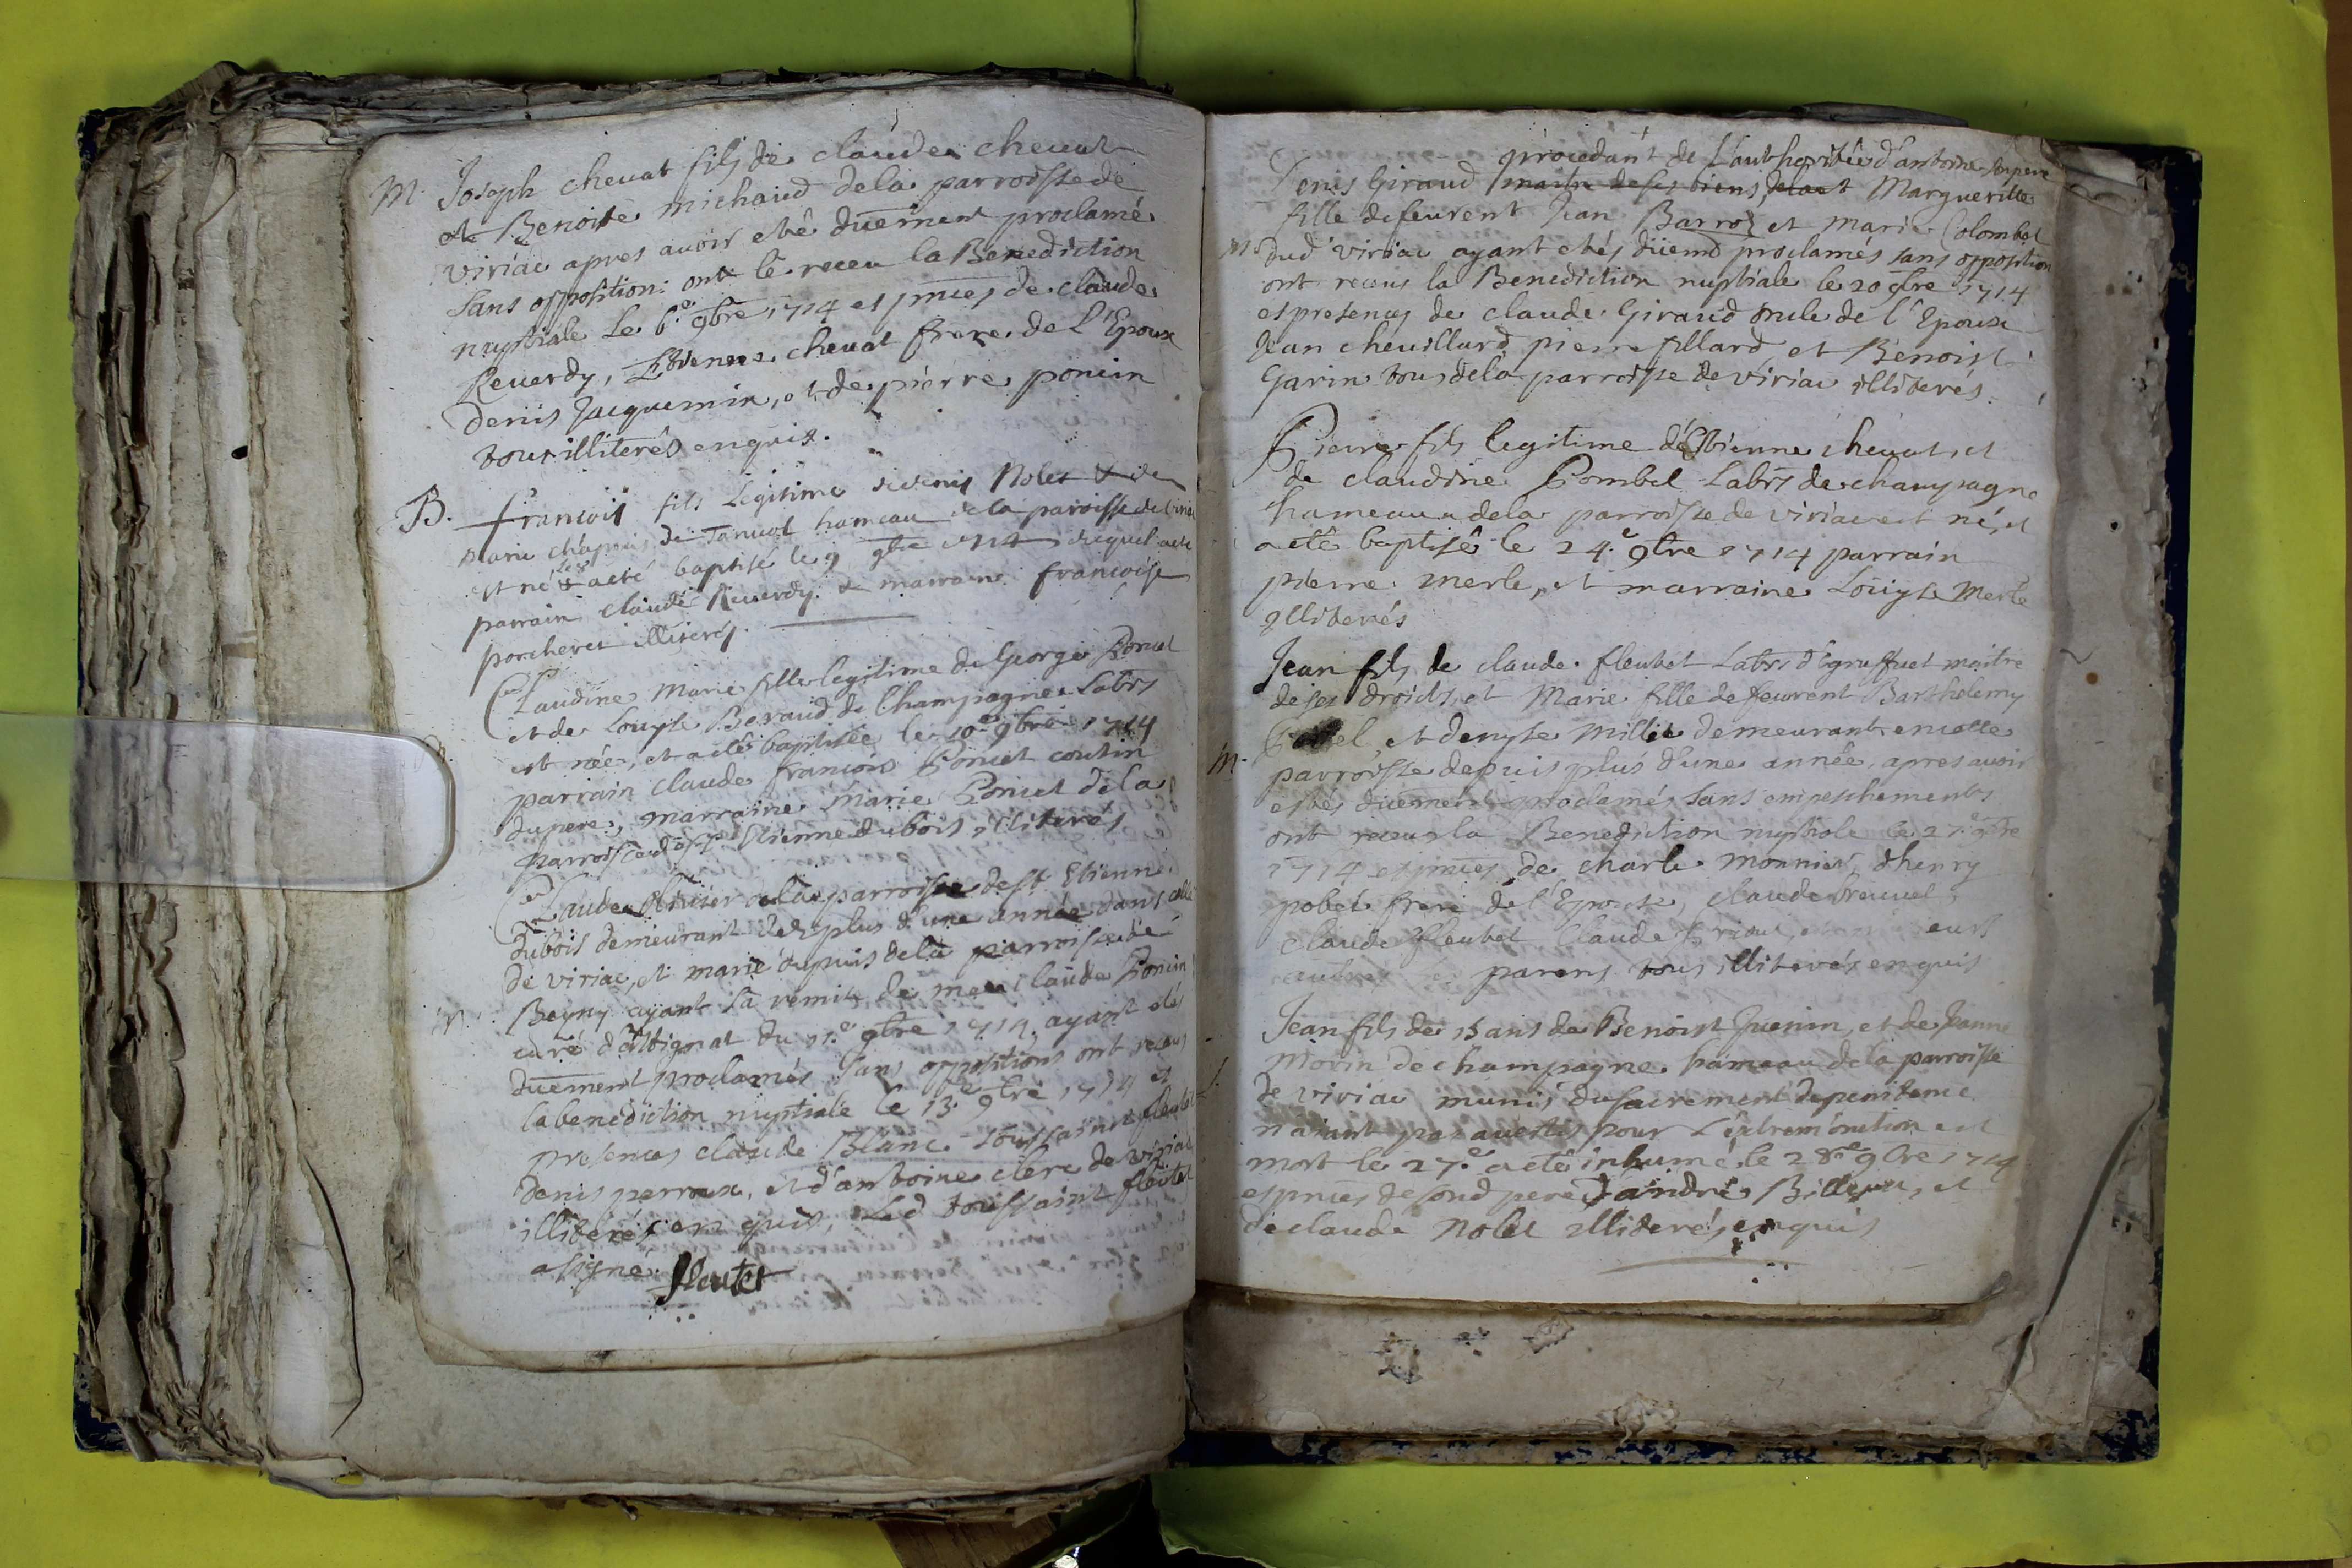 M. Joseph chevat fils de claude chevat
et Benoite michaud de la parroisse de
viriac apres avoir eté duement proclamé
sans opposition ont le receu la Benediction
nuptiale le 6.e 9bre 1714 es pnces de claude
Reverdy, Etienne chevat frere de l'Epoux
denis Jacquemin, et de pierre poncin
tous illiterés enquis.
B. francois fils Legitime de denis Nolet & de
marie chapuis de Tanvol hameau de la paroisse de viriac
est né le 8 & a eté baptisé le 9 9bre 1714 duquel a eté
parrain claude Reverdy & marraine francoise
porcheret illiterés.
Claudine Marie fille legitime de George Poncet
et de Louyse Beraud de Champagne Labrs
est née, et a eté baptisée le 10.e 9bre 1714
parrain claude francois Poncet coutin
du pere, marraine Marie Poncet de la
parroisse de st Etienne du bois illiterés
Claude olivier de la parroisse de st Etienne
dubois demeurant des plus d'une année dans celle
de viriac, et marie dupuis de la parroisse de
Beyny ayant la remise de mre claude Poncin
curé d'Attignat du 11.e 9bre 1714, ayant etés
duement proclamés sans oppositions ont receus
la benediction nuptiale le 13.e 9bre 1714 es
presences claude Blanc Toussaint fleutet
denis perroux, et d'antoine clerc de viriac
illiterés enquis, Led toussaint fleutet
a signé. fleutet
procedant de L'authorité d'antoine son pere
Denis Giraud maitre de ses biens, et Marguerite
fille de feu Jean Barroz et Marie Colombet
M. dud viriac ayant etés düemt proclamés sans opposition
ont receus la Benediction nuptiale le 20 9bre 1714
es presences de claude Giraud oncle de l'Epoux
Jean chevillard pierre pillard et Benoist
Garin tous de la parroisse de viriac illiterés.
Pierre fils legitime d'Etienne chevat, et
de claudine Combet Labrs de champagne
hameau de la parroisse de viriac est né, et
a eté baptisé le 24.e 9bre 1714 parrain
pierre merle, et marraine Louyse Merle
illiterés
Jean fils de claude fleutet Labrs d'Egreffuet maitre
de ses droicts, et Marie fille de feu Barthelemy
et denyse Millet demeurant en cette
M. parroisse depuis plus d'une année, apres avoir
estés düement proclamés sans empeschements
ont receus la Benediction nuptiale le 27.e 9bre
1714 es pnces de charle monnier, d'henry
pobel frere de l'Epouse, claude
claude fleutet claude
parens tous illiterés enquis
Jean fils de 15 ans de Benoist Juenin, et de Jeanne
Morin de champagne hameau de la parroisse
de viriac munis du sacrement de penitence
n'aiant pas avertis pour L'extremonction est
mort le 27.e a eté inhumé le 28.e 9bre 1714
es pnces de sond pere d'andré Billion, et
de claude Nolet illiterés enquis